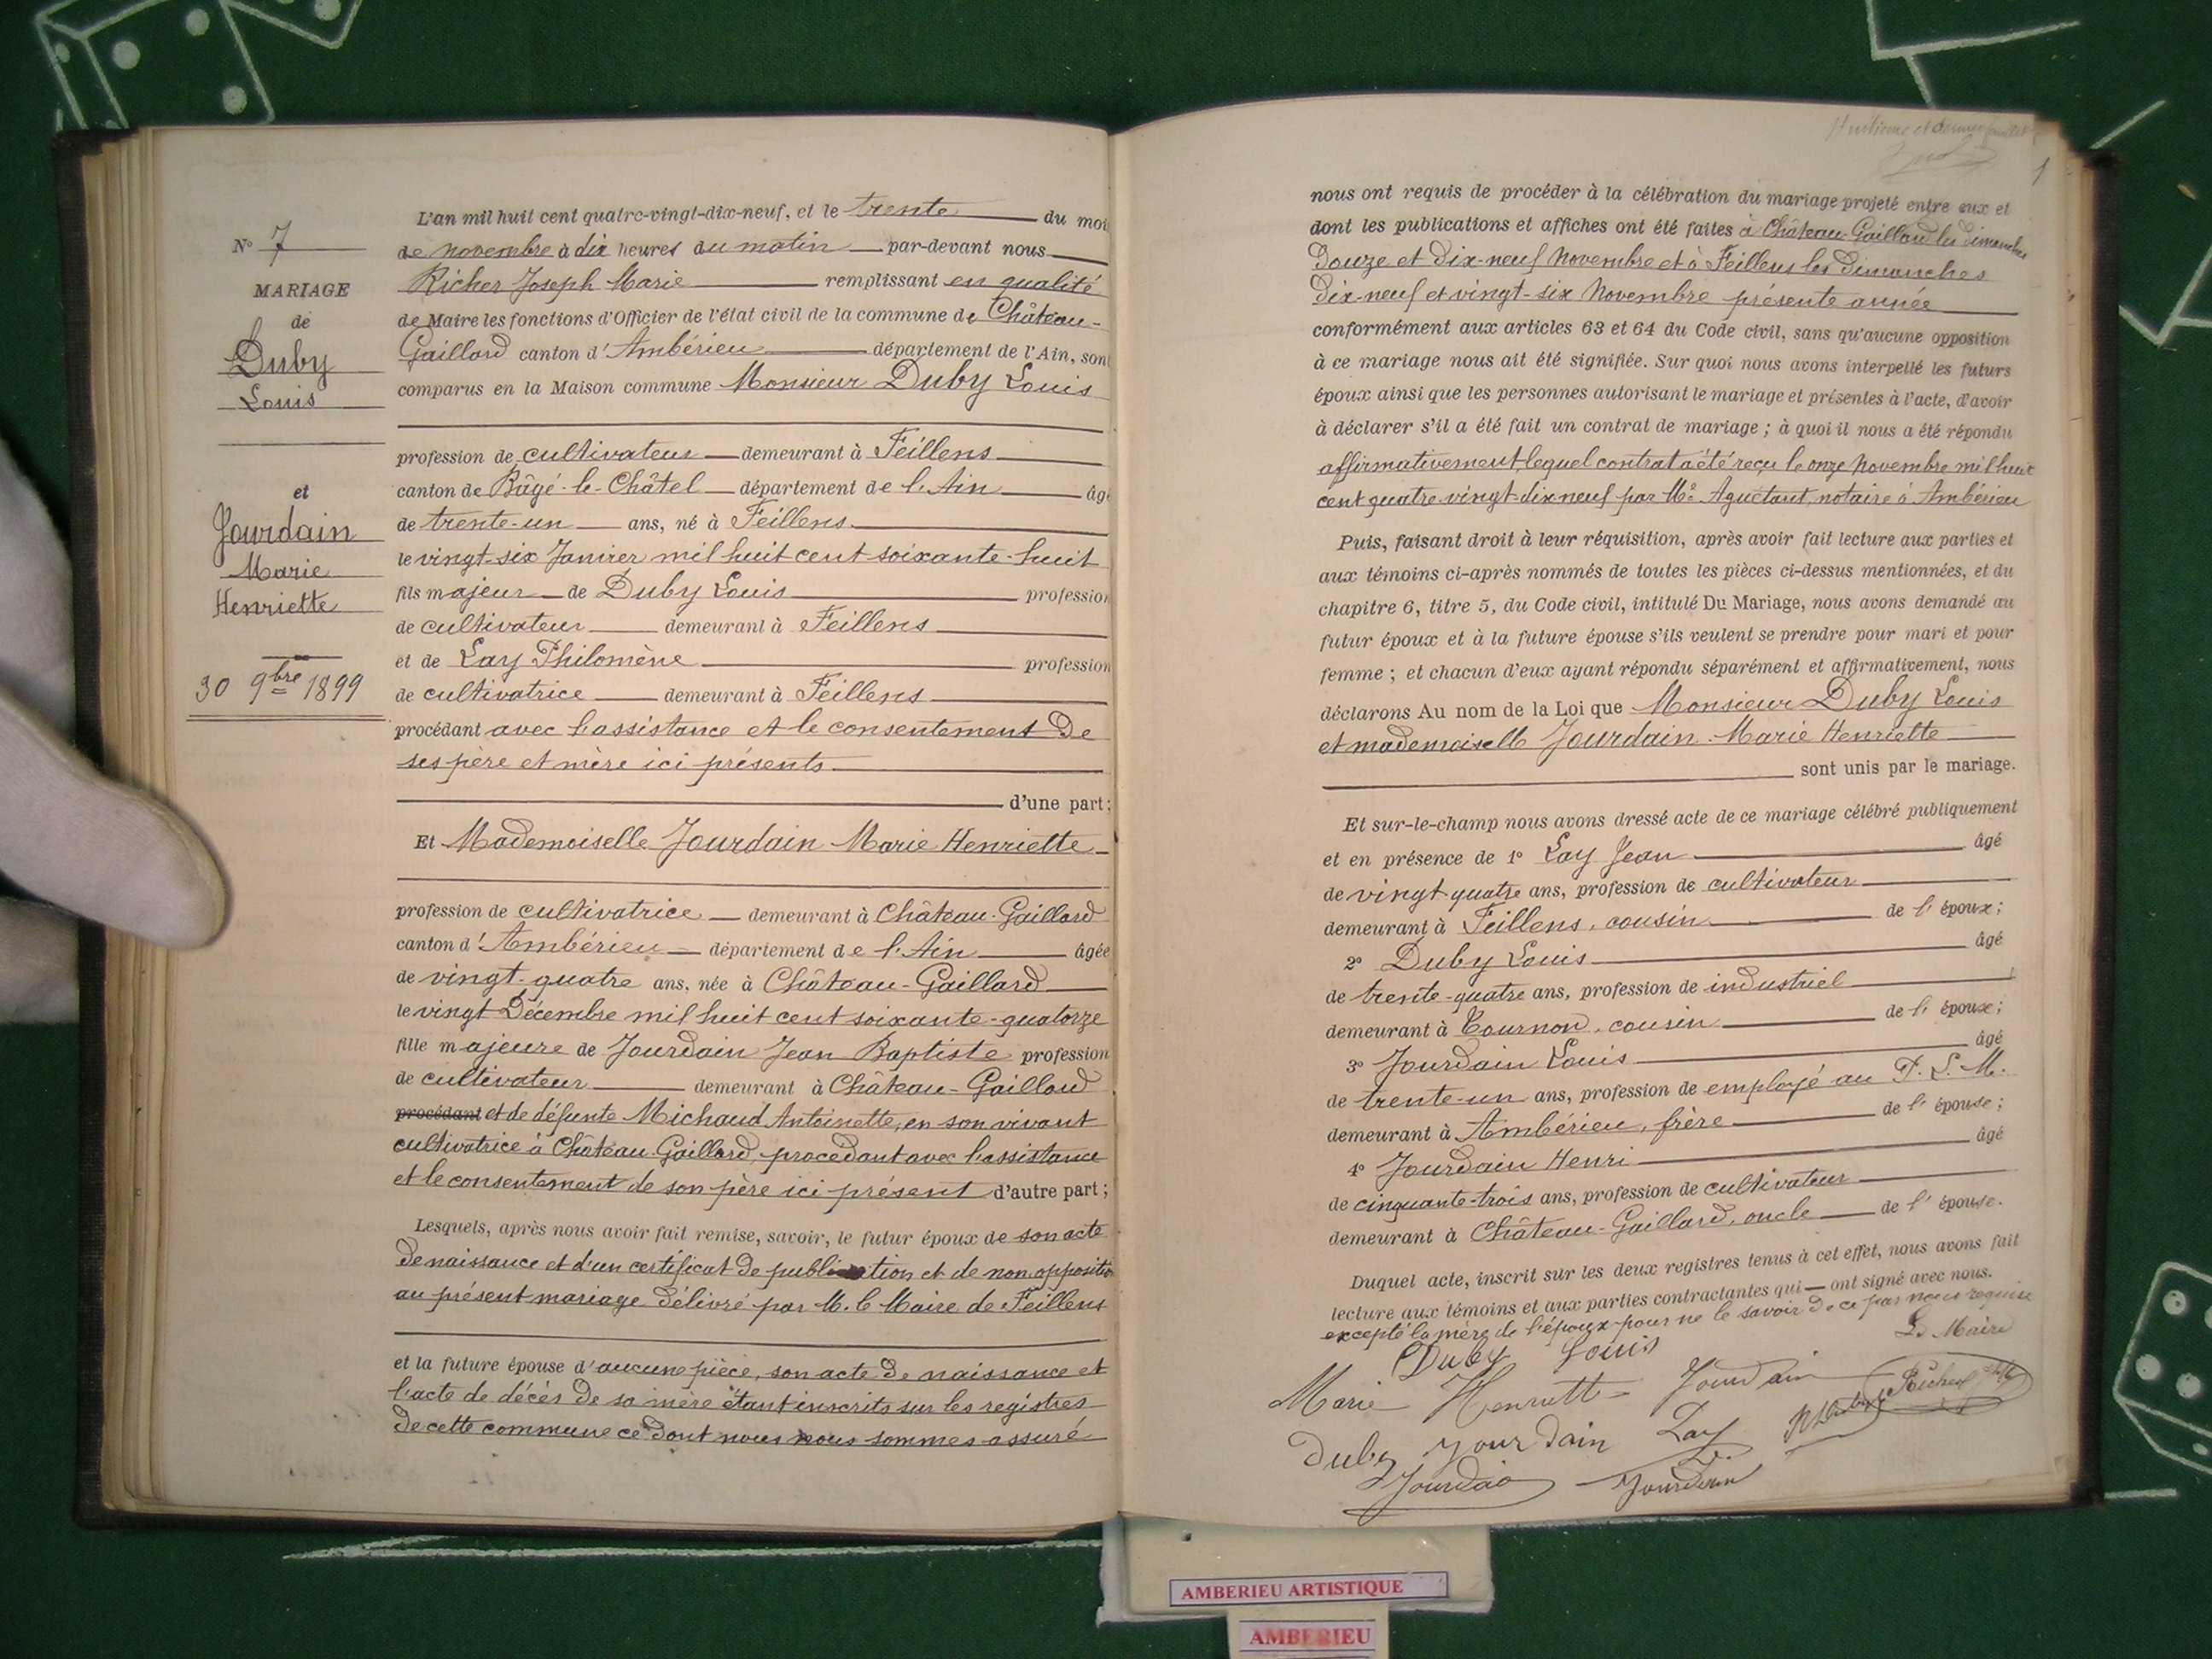 N° 7
MARIAGE
de
Duby
Louis
et
Jourdain
Marie
Henriette
30 9bre 1899
L'an mil huit cent quatre-vingt-dix-neuf, et le trente du moi
de novembre à dix heures du matin par-devant nous
Richer Joseph Marie remplissant en qualité
de Maire les fonctions d'Officier de l'état civil de la commune de Château-
Gaillard canton d'Ambérieu département de l'Ain, sont
comparus en la Maison commune Monsieur Duby Louis
profession de cultivateur demeurant à Feillens
canton de Bâgé-le-Châtel département de l'Ain âgé
de trente-un ans, né à Feillens
le vingt-six Janvier mil huit cent soixante-huit
fils majeur de Duby Louis profession
de cultivateur demeurant à Feillens
et de Lay Philomène profession
de cultivatrice demeurant à Feillens
procédant avec l'assistance et le consentement de
ses père et mère ici présents
d'une part;
Et Mademoiselle Jourdain Marie Henriette
profession de cultivatrice demeurant à Château-Gaillard
canton d'Ambérieu département de l'Ain âgée
de vingt-quatre ans, née à Château-Gaillard
le vingt Décembre mil huit cent soixante-quatorze
fille majeure de Jourdain Jean Baptiste profession
de cultivateur demeurant à Château-Gaillard
procédant et de défunte Michaud Antoinette, en son vivant
cultivatrice à Château-Gaillard, procédant avec l'assistance
et le consentement de son père ici présent d'autre part;
Lesquels, après nous avoir fait remise, savoir, le futur époux de son acte
de naissance et d'un certificat de publication et de non opposition
au présent mariage délivré par M. le Maire de Feillens
et la future épouse d'aucune pièce, son acte de naissance et
l'acte de décès de sa mère étant inscrits sur les registres
de cette commune ce dont nous nous sommes assuré
nous ont requis de procéder à la célébration du mariage projeté entre eux et
dont les publications et affiches ont été faites à Château-Gaillard les dimanches
Douze et Dix-neuf Novembre et à Feillens les Dimanches
Dix-neuf et vingt-six Novembre présente année
conformément aux articles 63 et 64 du Code civil, sans qu'aucune opposition
à ce mariage nous ait été signifiée. Sur quoi nous avons interpellé les futurs
époux ainsi que les personnes autorisant le mariage et présentes à l'acte, d'avoir
à déclarer s'il a été fait un contrat de mariage; à quoi il nous a été répondu
affirmativement lequel contrat a été reçu le onze Novembre mil huit
cent quatre-vingt-dix-neuf par Me Aguétant, notaire à Ambérieu
Puis, faisant droit à leur réquisition, après avoir fait lecture aux parties et
aux témoins ci-après nommés de toutes les pièces ci-dessus mentionnées, et du
chapitre 6, titre 5, du Code civil, intitulé Du Mariage, nous avons demandé au
futur époux et à la future épouse s'ils veulent se prendre pour mari et pour
femme; et chacun d'eux ayant répondu séparément et affirmativement, nous
déclarons Au nom de la Loi que Monsieur Duby Louis
et mademoiselle Jourdain Marie Henriette
sont unis par le mariage.
Et sur-le-champ nous avons dressé acte de ce mariage célébré publiquement
et en présence de 1° Lay Jean âgé
de vingt quatre ans, profession de cultivateur
demeurant à Feillens, cousin de l'époux;
2° Duby Louis âgé
de trente-quatre ans, profession de industriel
demeurant à Tournon, cousin de l'époux;
3° Jourdain Louis âgé
de trente-un ans, profession de employé au P. L. M.
demeurant à Ambérieu, frère de l'épouse;
4° Jourdain Henri âgé
de cinquante-trois ans, profession de cultivateur
demeurant à Château-Gaillard, oncle de l'épouse.
Duquel acte, inscrit sur les deux registres tenus à cet effet, nous avons fait
lecture aux témoins et aux parties contractantes qui ont signé avec nous.
excepté la mère de l'époux pour ne le savoir de ce par nous requise
Le Maire
Duby Louis
Marie Henriette Jourdain Richer
Duby Jourdain Lay
Jourdain Jourdain
AMBERIEU ARTISTIQUE
AMBERIEU